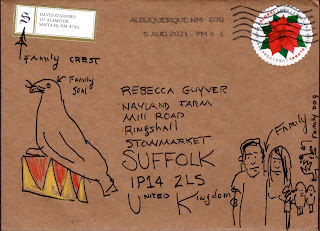 DAVID STAFFORD
SANTA FE, NM 87501
ALBUQUERQUE NM 870
5 AUG 2021 PM 4 L
FAMILY CREST
FAMILY SEAL
REBECCA GUYVER
NAYLAND FARM
MILL ROAD
RINGSHALL
STOWMARKET
SUFFOLK
IP14 2LS
UNITED KINGDOM
FAMILY
FAMILY DOG